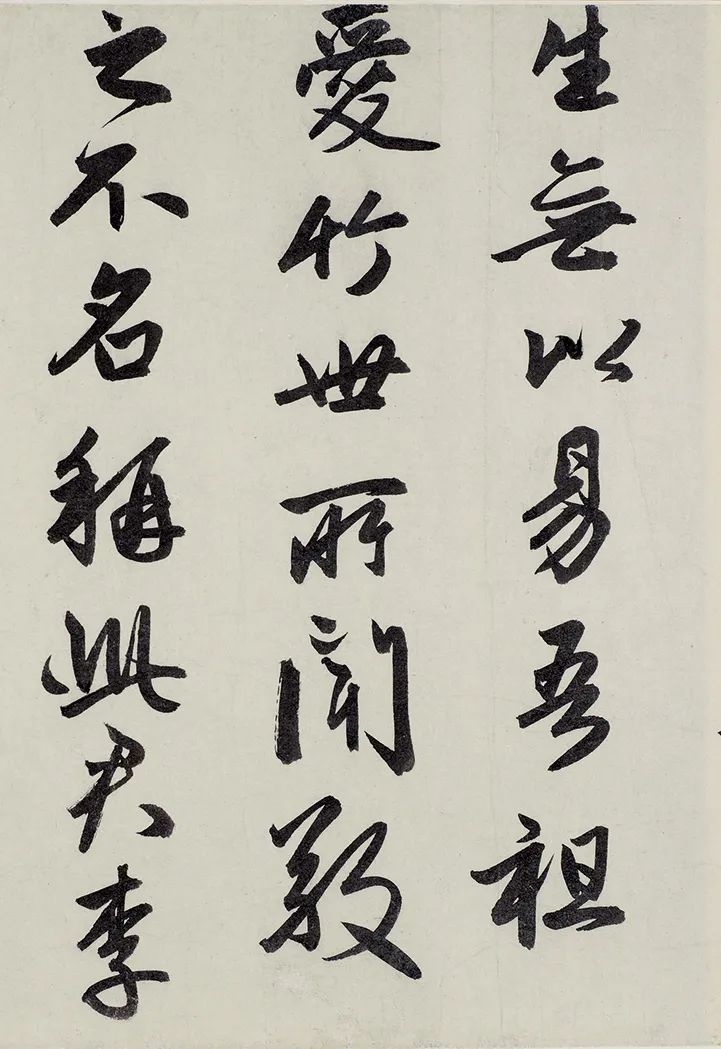 生無以易吾祖
愛竹世所聞敬
之不名稱此君李